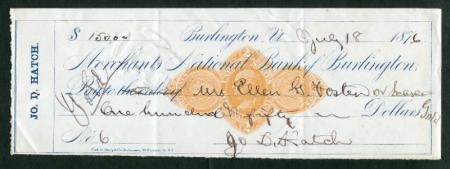 $ 150.00 Burlington, Vt July 18 1876
Merchants National Bank of Burlington.
Pay to the order of Mrs Ellen G. Foster or bearer
One hundred & fifty Dollars Gold
No. 6 Jo D. Hatch
JO. D. HATCH.